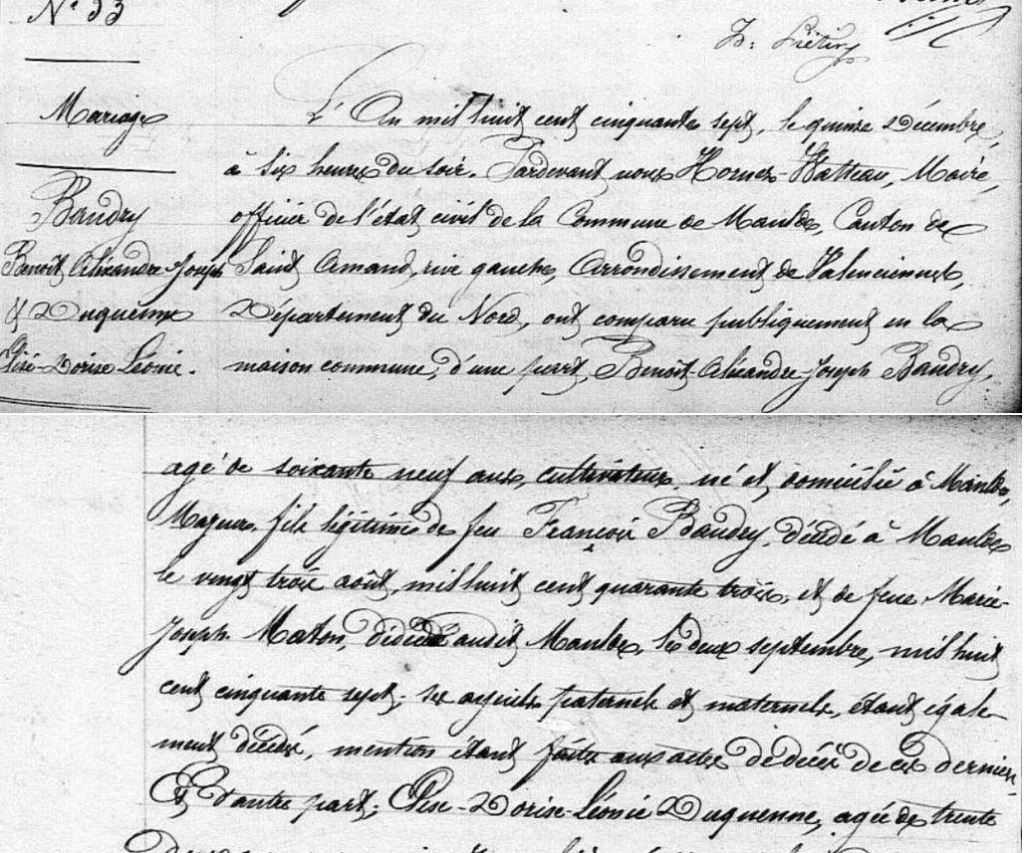 N° 33
Mariage
Baudry
Benoît, Alixandre-Joseph
& Duquenne
Elise-Dorise Léonie.
L'An mil huit cent cinquante sept, le quinze Décembre,
à six heures du soir. Pardevant nous Hornez-Watteau, Maire,
officier de l'état civil de la Commune de Maulde, Canton de
Saint Amand, rive gauche, Arrondissement de Valenciennes,
Département du Nord, ont comparu publiquement en la
maison commune, d'une part, Benoît-Alixandre-Joseph Baudry,
agé de soixante neuf ans, cultivateur, né et domicilié à Maulde,
Majeur, fils légitime de feu François Baudry, décédé à Maulde
le vingt trois août, mil huit cent quarante trois, et de feue Marie-
Joseph Maton, décédée audit Maulde, le deux septembre, mil huit
cent cinquante sept; ses ayeuls paternels et maternels, étant égale-
ment décédés, mention étant faite aux actes de décès de ces derniers.
Et d'autre part; Elise-Dorise-Léonie Duquenne, agée de trente